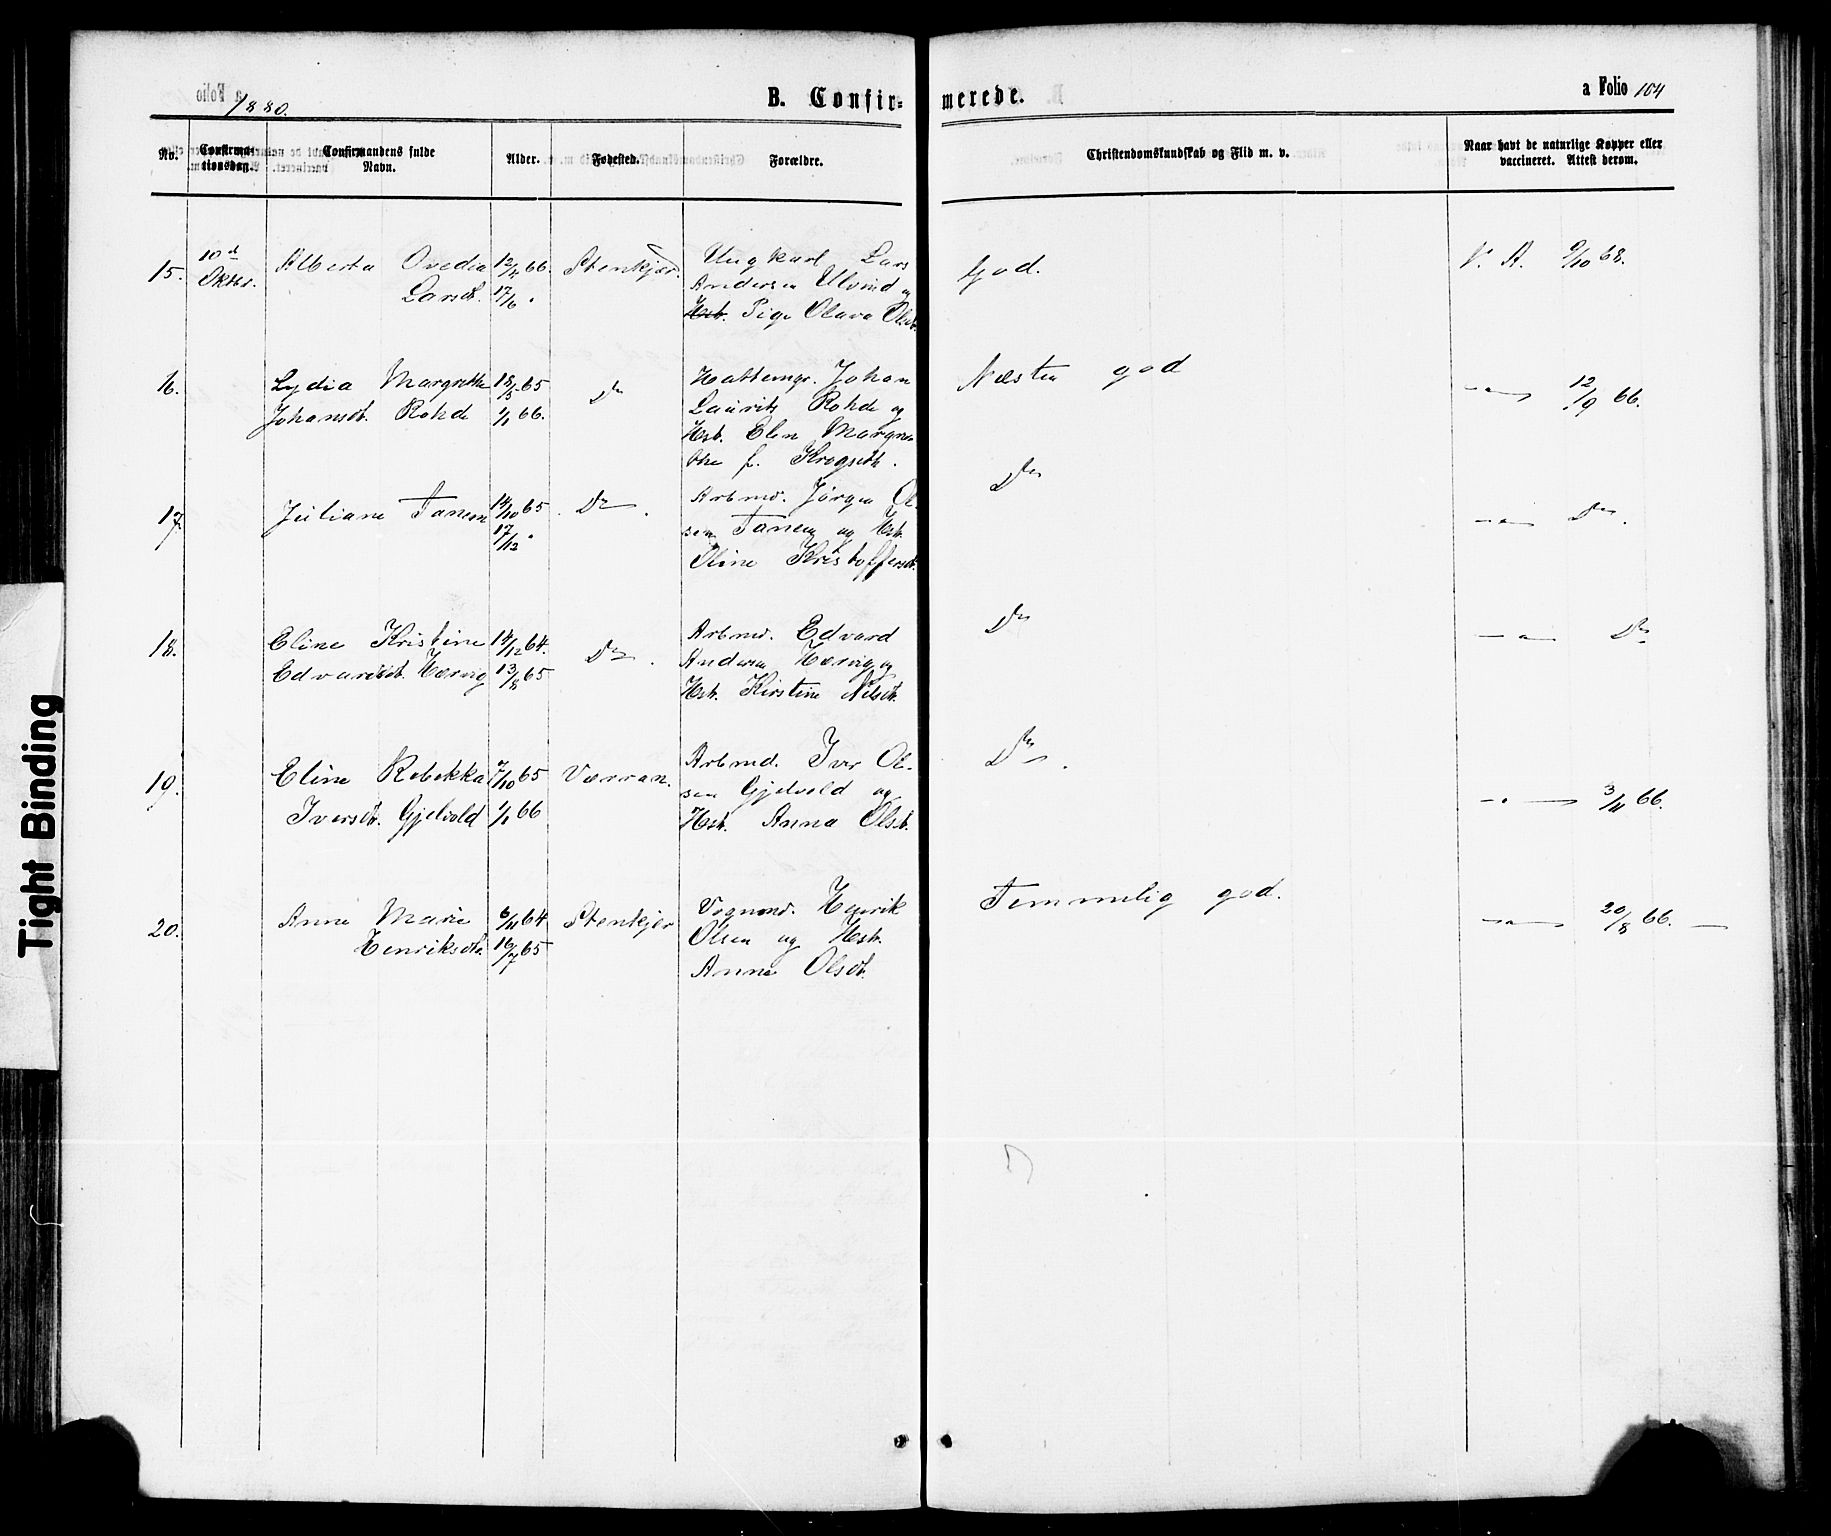 1880.
B. Confir-
merede.
a Folio 104
No.
Confirma-
tionsdag.
Confirmandens fulde
Navn.
Alder.
Fødested.
Forældre.
Christendomskundskab og Flid m. v.
Naar havt de naturlige Kopper eller
vaccineret. Attest derom.
15.
10d
Oktbr.
Alberta Ovedia
Larsdt.
12/4 66.
17/6 "
Stenkjær.
Ungkarl Lars
Andersen Ulvind og
Hst. Pige Olava Olsdt.
God.
V. A. 9/10 68.
16.
Lydia Margrethe
Johansdt. Rohde
18/5 65
1/1 66.
Do
Hattemgr. Johan
Laurits Rohde og
Hst. Elen Margre-
the f. Krogseth.
Næsten god
— " — 12/9 66.
17.
Juliane Tanem
14/10 65
17/12 "
Do.
Arbmd. Jørgen Ol-
sen Tanem og Hst.
Oline Kristoffersdt.
Do
— " — Do.
18.
Eline Kristine
Edvardsdt. Hærvig
14/12 64.
13/8 65
Do.
Arbmd. Edvard
Andersen Hærvig og
Hst. Kirstine Nilsdt.
Do
— " — Do
19.
Eline Rebekka
Iversdt. Gjelvold
7/10 65
1/1 66
Værran.
Arbmd. Iver Ol-
sen Gjelvold og
Hst. Anna Olsdt.
Do.
— " — 3/11 66.
20.
Anne Marie
Henriksdt.
6/11 64
16/7 65
Stenkjær
Vognmd. Henrik
Olsen og Hst.
Anne Olsdt.
Temmelig god.
— " — 20/8 66. —
Tight Binding